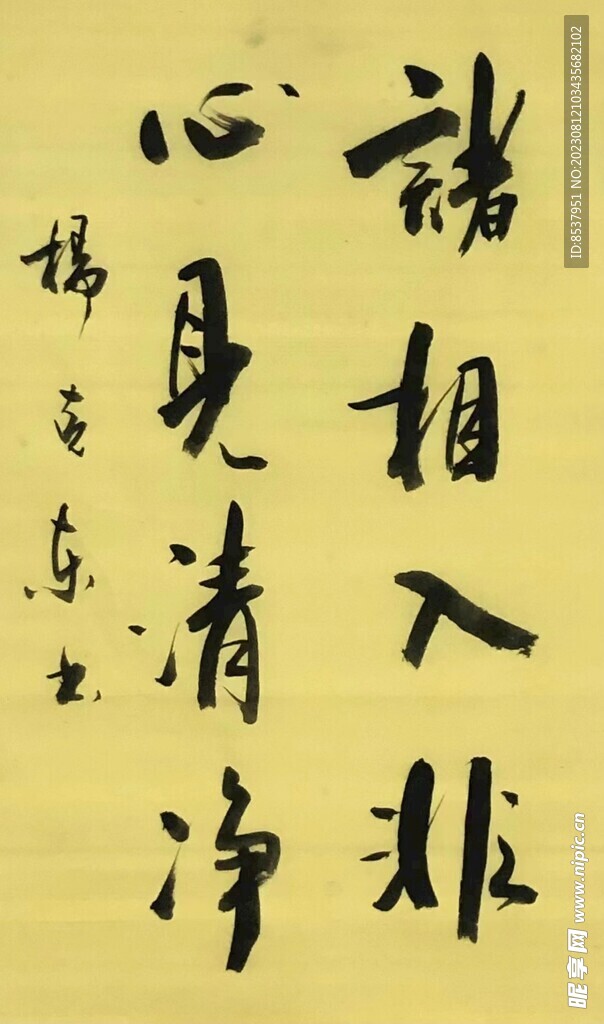 諸相入非
心見清净
楊克东书
ID:8537951 NO:20230812103435682102
昵享网 www.nipic.cn